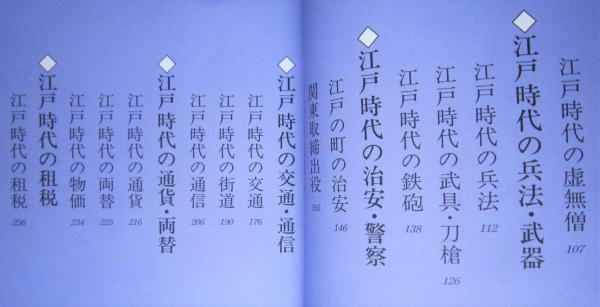 江戸時代の虚無僧 107
◇江戸時代の兵法・武器
江戸時代の兵法 112
江戸時代の武具・刀槍 126
江戸時代の鉄砲 138
◇江戸時代の治安・警察
江戸の町の治安 146
関東取締出役 165
◇江戸時代の交通・通信
江戸時代の交通 176
江戸時代の街道 190
江戸時代の通信 206
◇江戸時代の通貨・両替
江戸時代の通貨 216
江戸時代の両替 225
江戸時代の物価 234
◇江戸時代の租税
江戸時代の租税 256